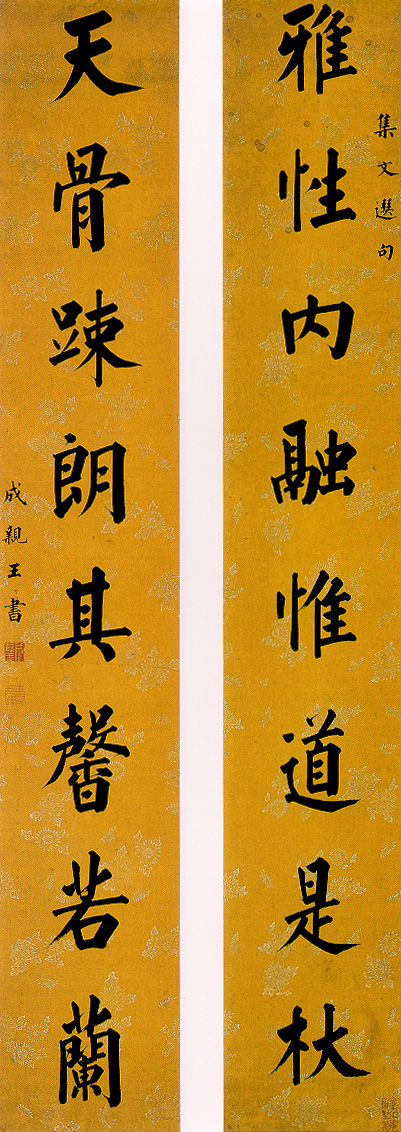 集文選句
雅性内融惟道是杖
天骨踈朗其馨若蘭
成親王書